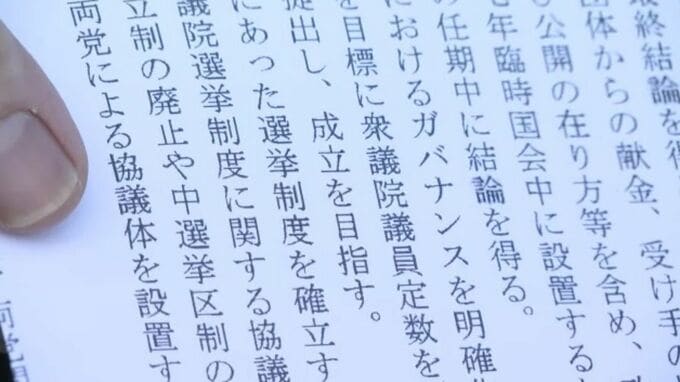 最終結論を得
団体からの献金、受け手の
公開の在り方等を含め、
年臨時国会中に設置する
の任期中に結論を得る。
におけるガバナンスを明確
を目標に衆議院議員定数を
提出し、成立を目指す。
にあった選挙制度を確立す
議院選挙制度に関する協議
立制の廃止や中選挙区制の
両党による協議体を設置す
両党間